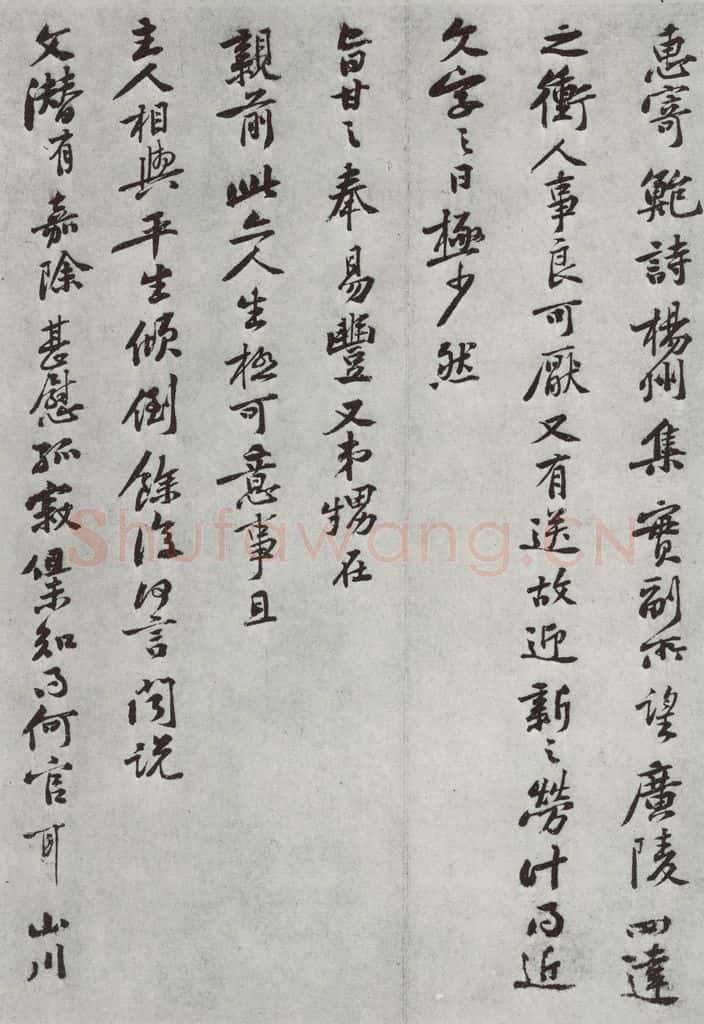 惠寄鮑詩楊州集實副所望廣陵四達
之衝人事良可厭又有送故迎新之勞計得近
文字之日極少然
旨甘之奉易豐又弟甥在
親前此亦人生極可意事且
主人相與平生傾倒餘復何言聞說
文潛有嘉除甚慰孤寂但未知得何官耳山川
Shufawang.CN